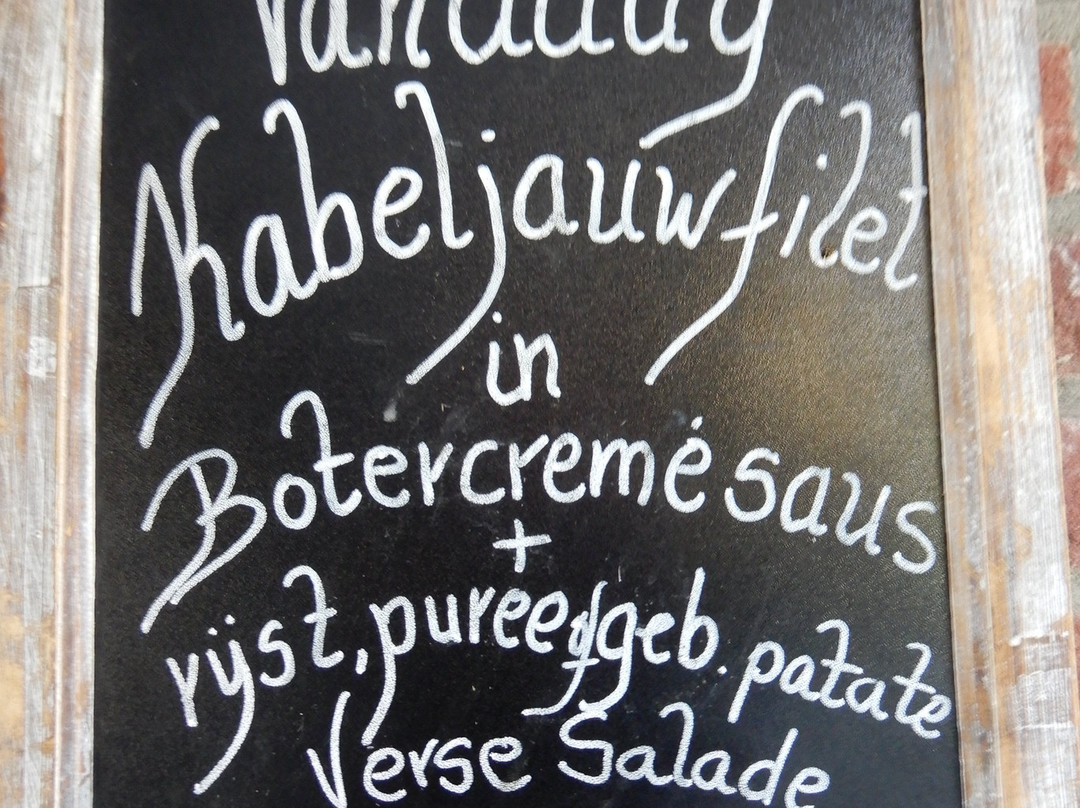 Vandaag
Kabeljauwfilet
in
Botercremé saus
+
rijst, puree of geb. patate
Verse Salade